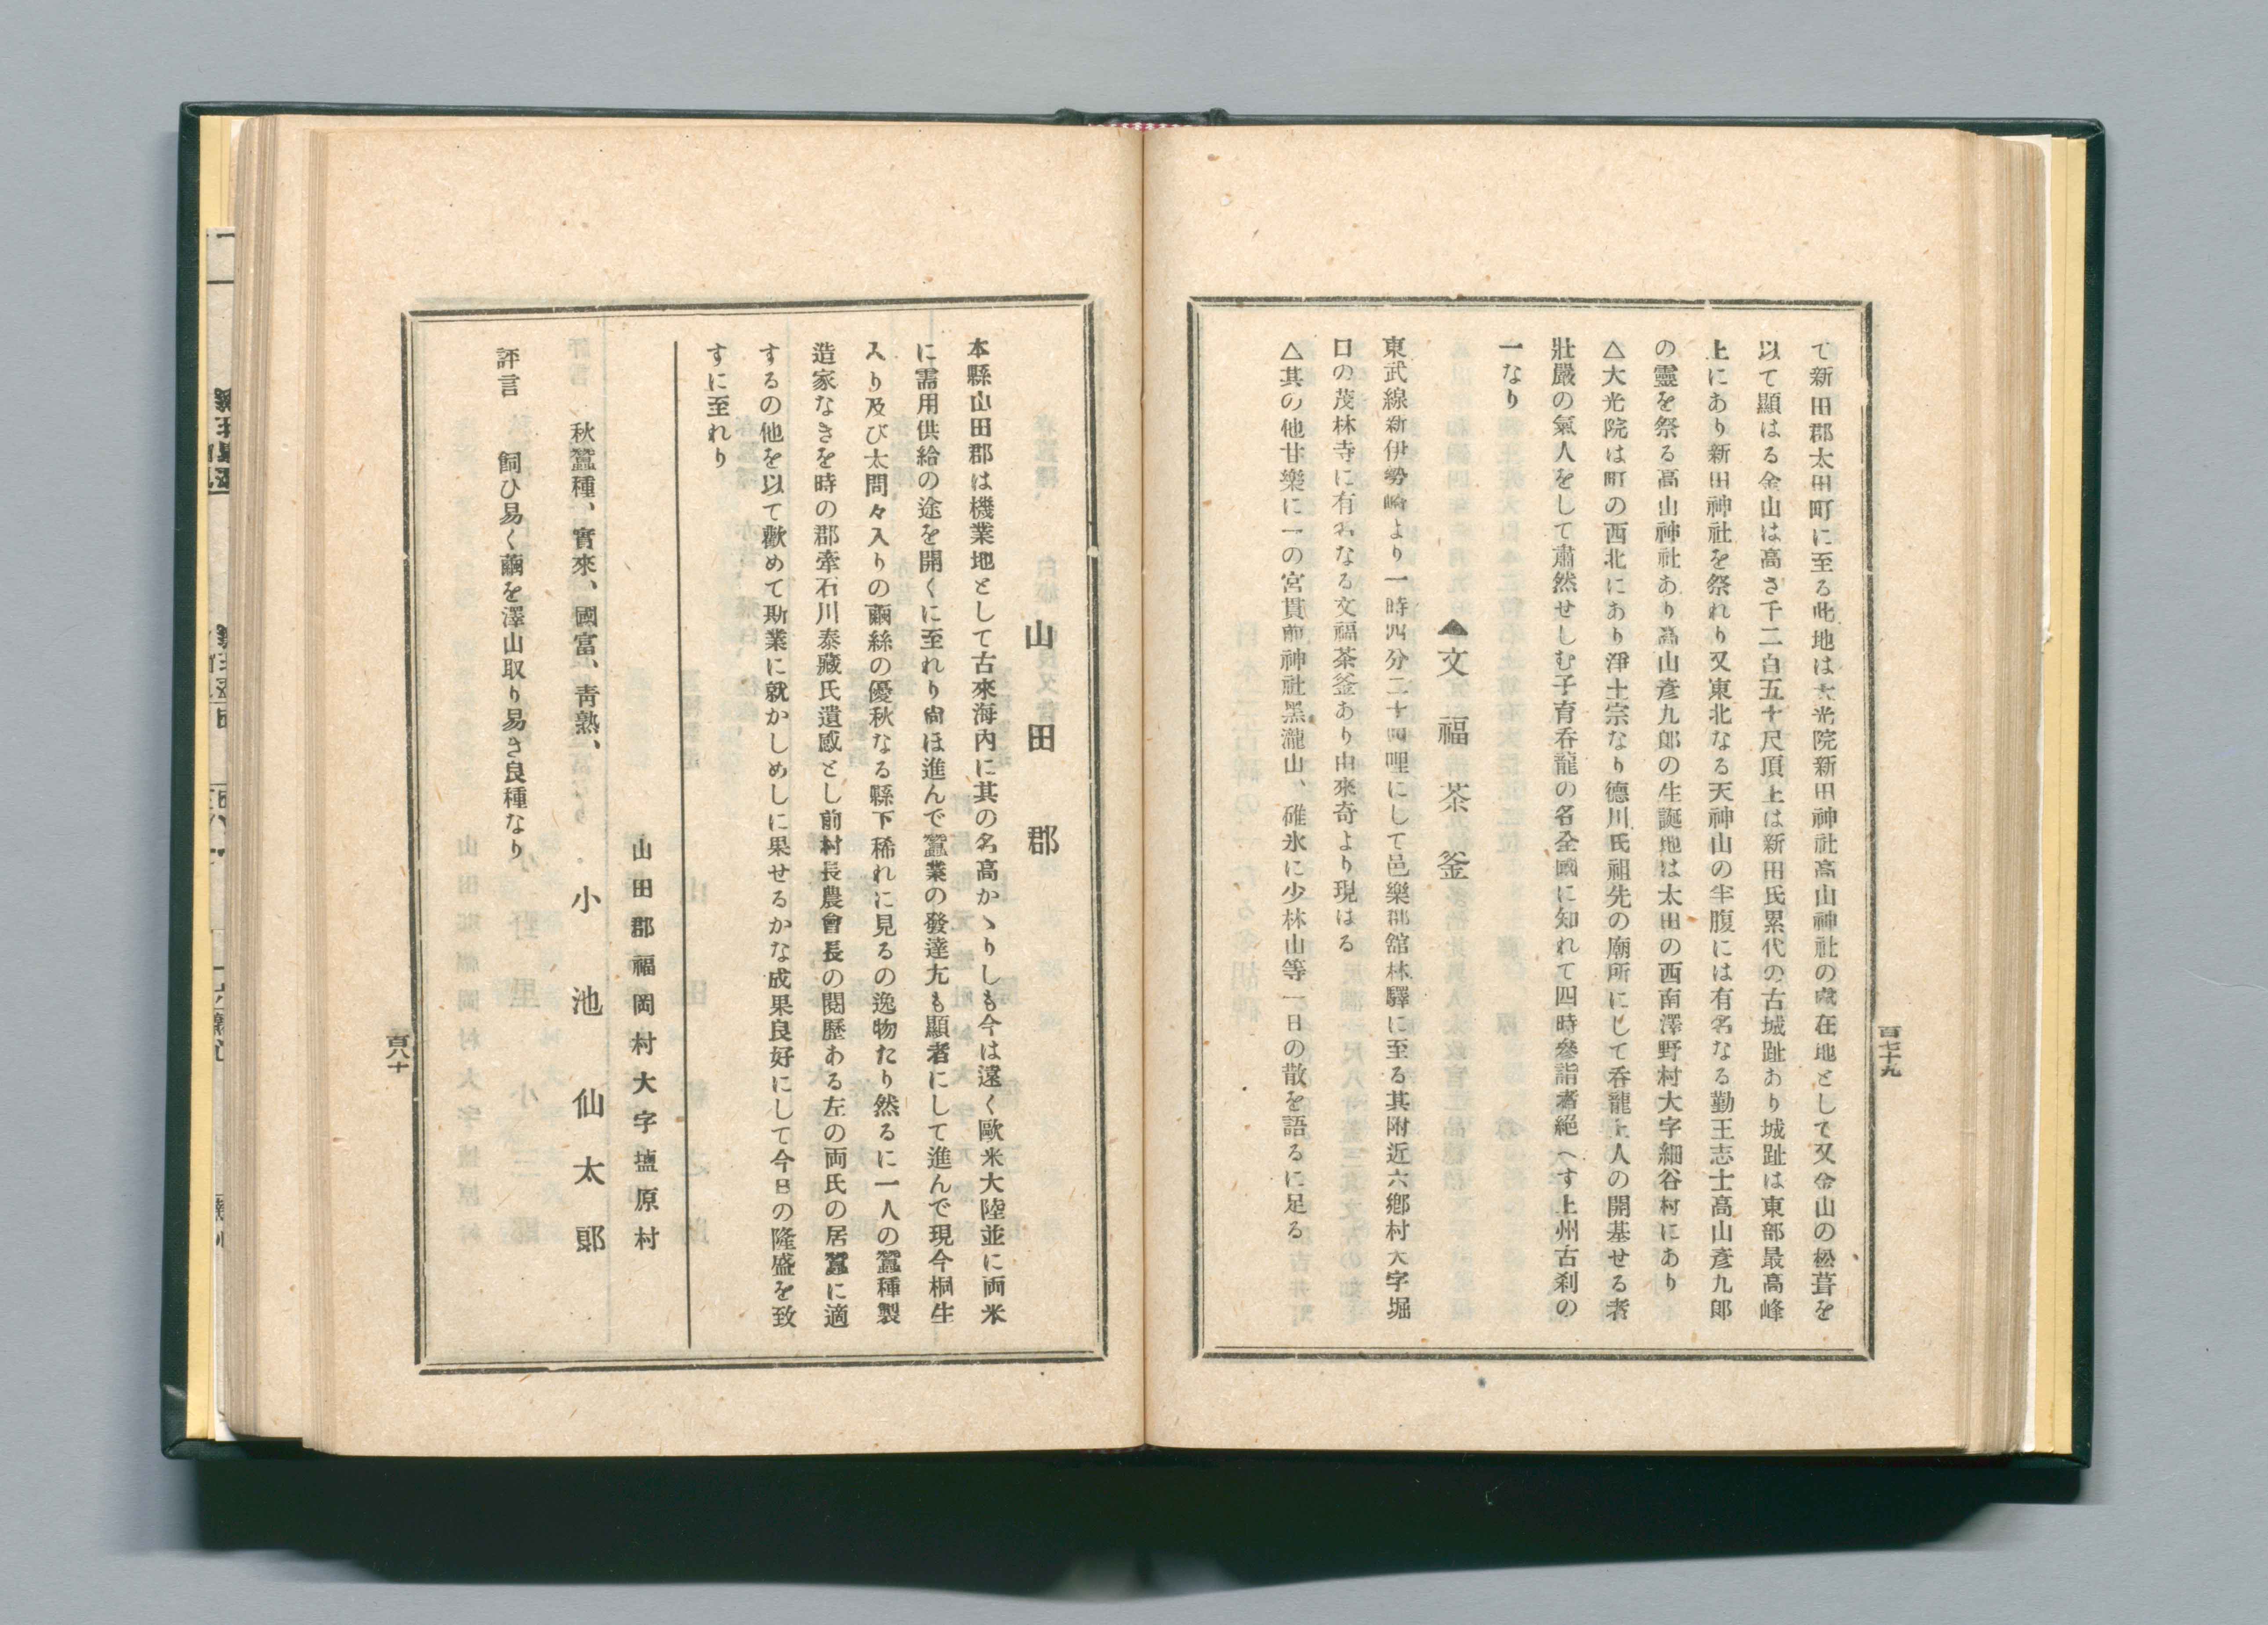 て新田郡太田町に至る此地は大光院新田神社高山神社の處在地として又金山の松茸を
以て顯はる金山は高さ千二百五十尺頂上は新田氏累代の古城趾あり城趾は東部最高峰
上にあり新田神社を祭れり又東北なる天神山の半腹には有名なる勤王志士高山彥九郎
の靈を祭る高山神社あり高山彥九郎の生誕地は太田の西南澤野村大字細谷村にあり
△大光院は町の西北にあり淨土宗なり德川氏祖先の廟所にして呑龍上人の開基せる者
壯嚴の氣人をして肅然せしむ子育呑龍の名全國に知れて四時參詣者絕へす上州古刹の
一なり
▲文福茶釜
東武線新伊勢崎より一時四分二十四哩にして邑樂郡舘林驛に至る其附近六鄕村大字堀
口の茂林寺に有名なる文福茶釜あり由來奇より現はる
△其の他甘樂に一の宮貫前神社黑瀧山、碓氷に少林山等一日の散を語るに足る
百七十九
山田郡
本縣山田郡は機業地として古來海內に其の名高かゝりしも今は遠く歐米大陸並に両米
に需用供給の途を開くに至れり尙ほ進んで蠶業の發達尢も顯者にして進んで現今桐生
入り及び太問々入りの繭絲の優秋なる縣下稀れに見るの逸物たり然るに一人の蠶種製
造家なきを時の郡宰石川泰藏氏遺感とし前村長農會長の閱歷ある左の両氏の居蠶に適
するの他を以て歡めて斯業に就かしめしに果せるかな成果良好にして今日の隆盛を致
すに至れり
山田郡福岡村大字塩原村
秋蠶種、實來、國富、靑熟、 小池仙太郎
評言 飼ひ易く繭を澤山取り易き良種なり
百八十